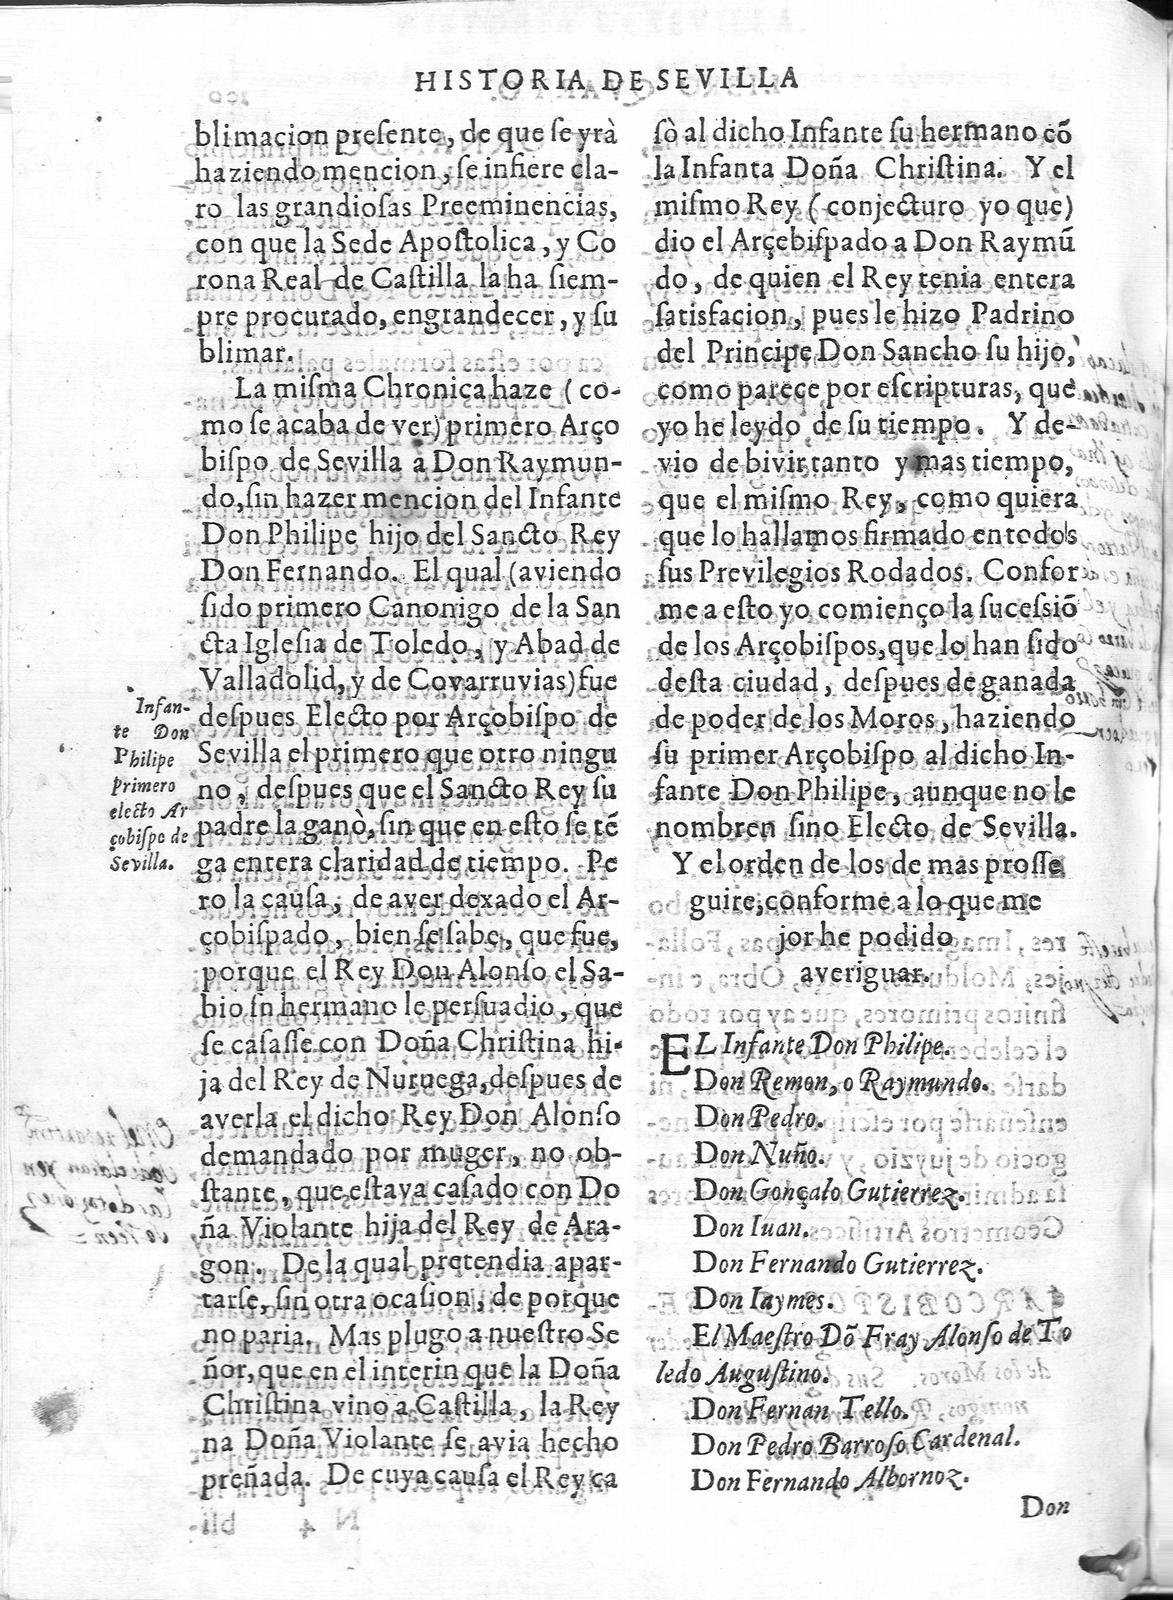 HISTORIA DE SEVILLA
blimacion presente, de que se yrà
haziendo mencion, se infiere cla-
ro las grandiosas Preeminencias,
con que la Sede Apostolica, y Co
rona Real de Castilla la ha siem-
pre procurado, engrandecer, y su
blimar.
La misma Chronica haze (co-
mo se acaba de ver) primero Arço
bispo de Sevilla a Don Raymun-
do, sin hazer mencion del Infante
Don Philipe hijo del Sancto Rey
Don Fernando. El qual (aviendo
sido primero Canonigo de la San
cta Iglesia de Toledo, y Abad de
Valladolid, y de Covarruvias) fue
despues Electo por Arçobispo de
Sevilla el primero que otro ningu
no, despues que el Sancto Rey su
padre la ganò, sin que en esto se tē
ga entera claridad de tiempo. Pe
ro la causa, de aver dexado el Ar-
çobispado, bien se sabe, que fue,
porque el Rey Don Alonso el Sa-
bio sn hermano le persuadio, que
se casasse con Doña Christina hi-
ja del Rey de Nuruega, despues de
averla el dicho Rey Don Alonso
demandado por muger, no ob-
stante, que estava casado con Do
ña Violante hija del Rey de Ara-
gon. De la qual pretendia apar-
tarse, sin otra ocasion, de porque
no paria. Mas plugo a nuestro Se
ñor, que en el interin que la Doña
Christina vino a Castilla, la Rey
na Doña Violante se avia hecho
preñada. De cuya causa el Rey ca
Infan-
te Don
Philipe
primero
electo Ar
çobispo de
Sevilla.
sò al dicho Infante su hermano cō
la Infanta Doña Christina. Y el
mismo Rey (conjecturo yo que)
dio el Arçebispado a Don Raymū
do, de quien el Rey tenia entera
satisfacion, pues le hizo Padrino
del Principe Don Sancho su hijo,
como parece por escripturas, que
yo he leydo de su tiempo. Y de-
vio de bivir tanto y mas tiempo,
que el mismo Rey, como quiera
que lo hallamos firmado en todos
sus Previlegios Rodados. Confor
me a esto yo comienço la sucessiō
de los Arçobispos, que lo han sido
desta ciudad, despues de ganada
de poder de los Moros, haziendo
su primer Arçobispo al dicho In-
fante Don Philipe, aunque no le
nombren sino Electo de Sevilla.
Y el orden de los de mas prosse
guire, conforme a lo que me
jor he podido
averiguar.
EL Infante Don Philipe.
Don Remon, o Raymundo.
Don Pedro.
Don Nuño.
Don Gonçalo Gutierrez.
Don Iuan.
Don Fernando Gutierrez.
Don Iaymes.
El Maestro Dō Fray Alonso de To
ledo Augustino.
Don Fernan Tello.
Don Pedro Barroso Cardenal.
Don Fernando Albornoz.
Don